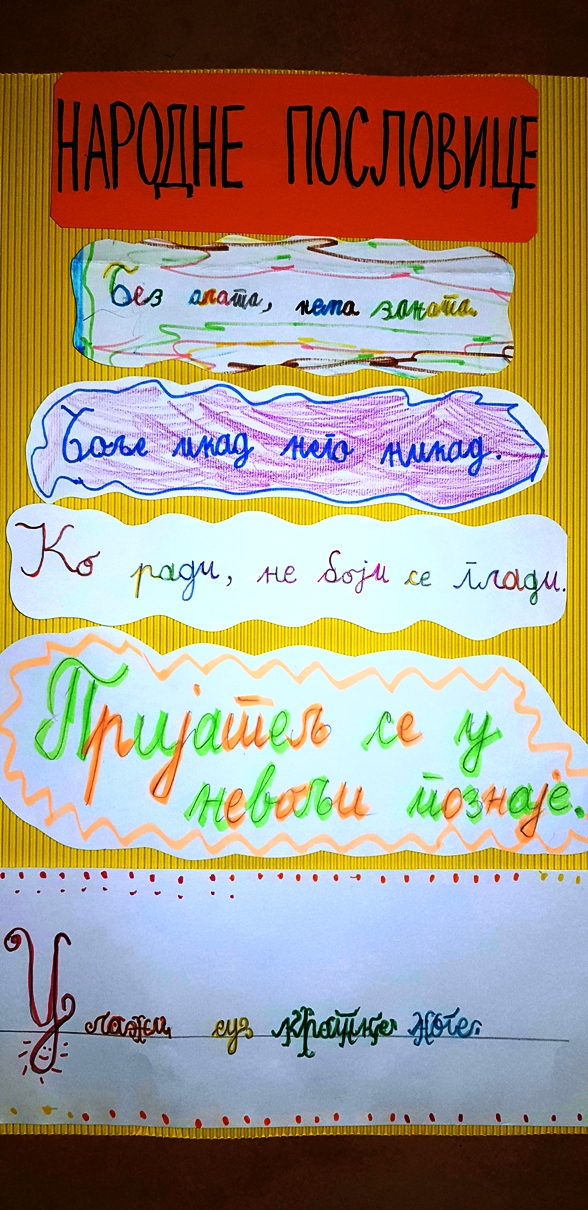 НАРОДНЕ ПОСЛОВИЦЕ
Без алата, нема заната.
Боље икад него никад.
Ко ради, не боји се глади.
Пријатељ се у
невољи познаје.
У лажи суз кратке ноге.